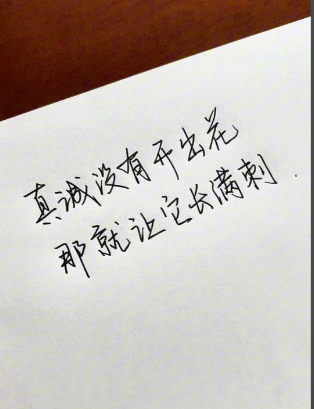 真诚没有开出花
那就让它长满刺